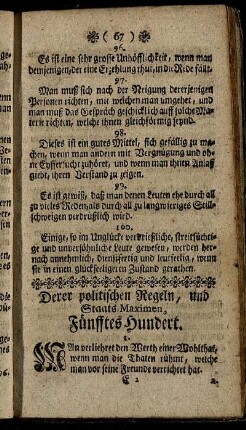 ( 67 )
96.
Es ist eine sehr grosse Unhöfflichkeit, wenn man
demjenigen, der eine Erzehlung thut, in die Rede fällt.
97.
Man muß sich nach der Neigung dererjenigen
Personen richten, mit welchen man umgehet, und
man muß das Gespräch geschicklich auff solche Ma-
terien richten, welche ihnen gleichförmig seynd.
98.
Dieses ist ein gutes Mittel, sich gefällig zu ma-
chen, wenn man andern mit Vergnügung und oh-
ne Eyffersucht zuhöret, und wenn man ihnen Anlaß
giebt, ihren Verstand zu zeigen.
99.
Es ist gewiß, daß man denen Leuten ehe durch all
zu vieles Reden, als durch all zu langwieriges Still-
schweigen verdrüßlich wird.
100.
Einige, so im Unglücke verdrießliche, streitsüchti-
ge und unversöhnliche Leute gewesen, werden her-
nach annehmlich, dienstfertig und leutseelig, wenn
sie in einen glückseeligeren Zustand gerathen.
Derer politischen Regeln, und
Staats-Maximen,
Fünfftes Hundert.
1.
MAn verliehret den Werth einer Wohlthat,
wenn man die Thaten rühmt, welche
man vor seine Freunde verrichtet hat.
E 2
2.